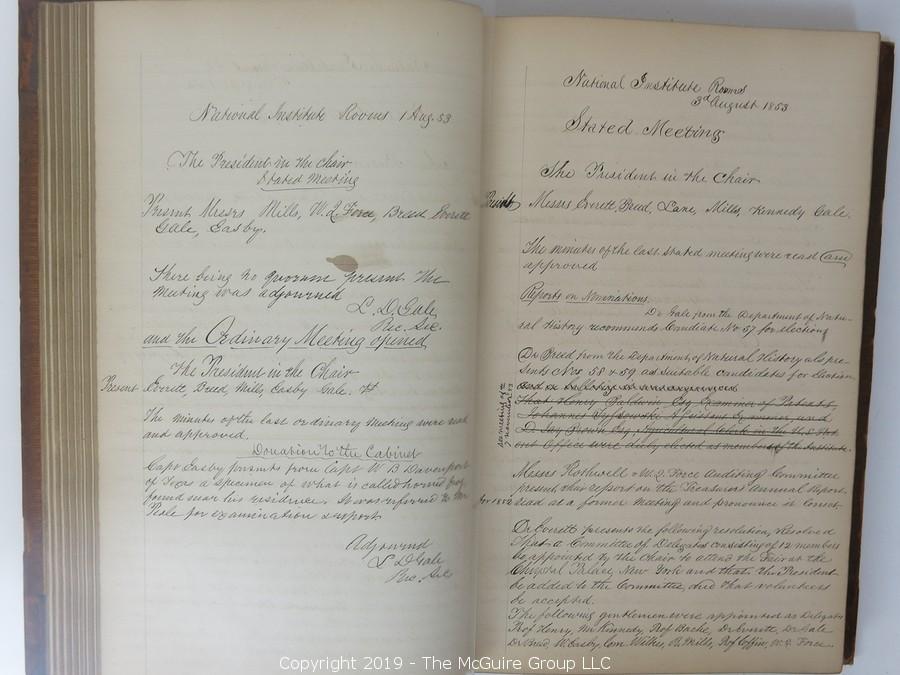 National Institute Rooms 1 Aug. 53
The President in the chair
Stated Meeting
Present Messrs Mills, W. Q. Force, Breed Everett
Gale, Easby.
There being no quorum present the
meeting was adjourned
L. D. Gale,
Rec. Sec.
and the Ordinary Meeting opened
The President in the Chair
Present Everett, Breed, Mills, Easby Gale.
The minutes of the last ordinary meeting were read
and approved.
Donation to the Cabinet
Capt Easby presents from Capt W B Davenport
of Texas a specimen of what is called horned frog
found near his residence. It was referred to Mr
Peale for examination & report
Adjourned
L D Gale
Rec. Sec
National Institute Rooms
3d August 1853
Stated Meeting
The President in the Chair
Present Messrs Everett, Breed, Lane, Mills, Kennedy Gale.
The minutes of the last stated meeting were read and
approved
Reports on Nominations.
Dr Gale from the Department of Natu-
ral History recommends Candidate No 57 for election
Dr Breed from the Department of Natural History also pre-
sents Nos 58 & 59 as suitable candidates for Election
and on balloting it was announced
That Henry Baldwin Esq Examiner of Patents
Johannes Assistant Examiner and
D Jay Brown Esq Agricultural Clerk in the U.S. Pat-
ent Office were duly elected as members of the Institute.
see meeting of the
7 November 53
Messrs Rothwell & W. Q. Force Auditing Committee
present their report on the Treasurers Annual Report
for 1852 read at a former meeting and pronounce it correct.
Dr Everett presents the following resolution, Resolved
That a Committee of Delegates consisting of 12 members
be appointed by the Chair to attend the Fair at the
Chrystal Palace, New York and that the President
be added to the Committee, and that volunteers
be accepted.
The following gentlemen were appointed as Delegates
Prof Henry, Mr Kennedy, Prof Bache, Dr Everett, Dr Gale
Dr Breed, W. Easby, Com Wilkes, R. Mills, Prof Coffin, W. Q. Force
Copyright 2019 - The McGuire Group LLC